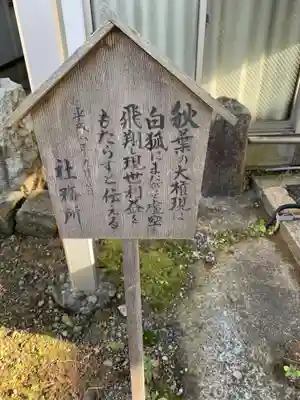 秋葉の大権現は
白狐にまたがり虚空
飛翔し現世利益を
もたらすと伝える
平成
社務所